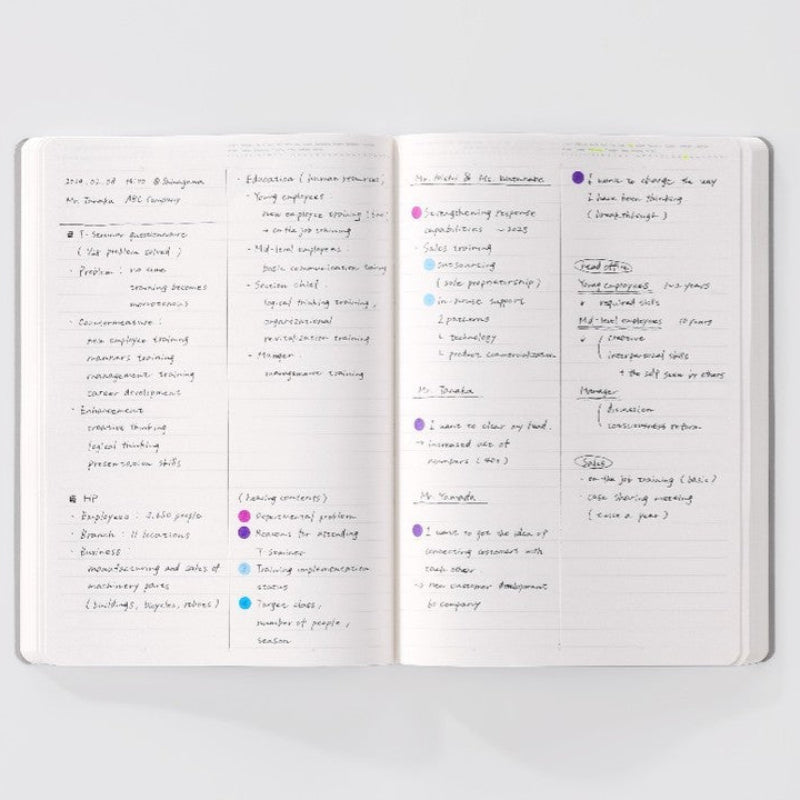 2019.02.08 16:00 @Shinagawa
Mr. Tanaka ABC Company
T-Seminar questionnaire
( Yet problem solved )
· Problem : no time
training becomes
monotonous
· Countermeasure :
new employee training
managers training
management training
career development
· Enhancement
creative thinking
logical thinking
presentation skills
HP
· Employees : 3,650 people
· Branch : 11 locations
· Business :
manufacturing and sales of
machinery parts
( buildings, bicycles, robots )
· Education ( human resources )
· Young employees :
new employee training
→ on the job training
· Mid-level employees :
basic communication training
· Section chief :
logical thinking training ,
organizational
revitalization training
· Manager :
management training
( hearing contents )
Departmental problem
Reasons for attending
T-seminar
Training implementation
status
Target class ,
number of people ,
season
Mr. & Ms. Watanabe
Strengthening response
capabilities ~ 2025
· Sales training
outsourcing
( sole proprietorship )
in-house support
2 patterns
└ technology
└ product commercialization
Mr. Tanaka
I want to clear my head.
→ increased use of
numbers ( 40% )
Mr. Yamada
I want to get the idea of
connecting customers with
each other.
→ new customer development
to company
I want to change the way
I have been thinking
( breakthrough )
Head office
Young employees 1~3 years
required skills
Mid-level employees 10 years
creative
interpersonal skills
+ the self seen in others
Manager
discussion
consciousness reform
Sales
· on the job training ( basic )
· case sharing meeting
( twice a year )